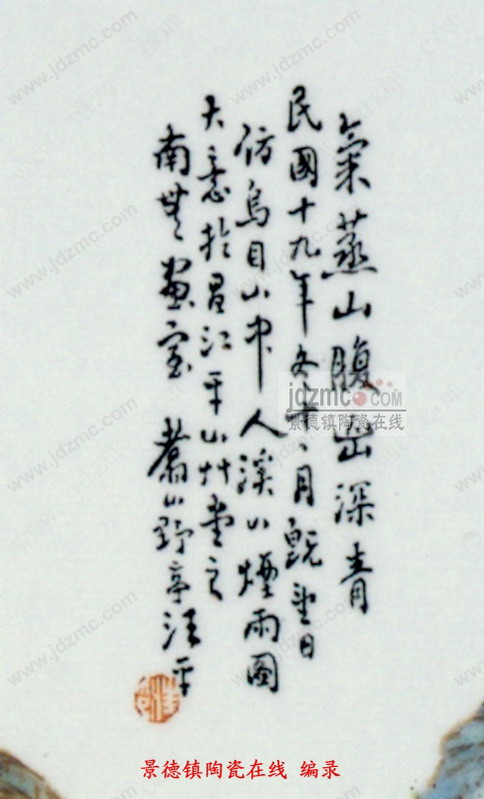 氣蒸山腹深青
民國十九年冬月既望日
仿烏目山中人溪山煙雨圖
大意於昌江平山艸堂之
南無畫室 翥山野亭汪平
jdzmc.com
景德镇陶瓷在线
www.jdzmc.com
景德镇陶瓷在线 编录